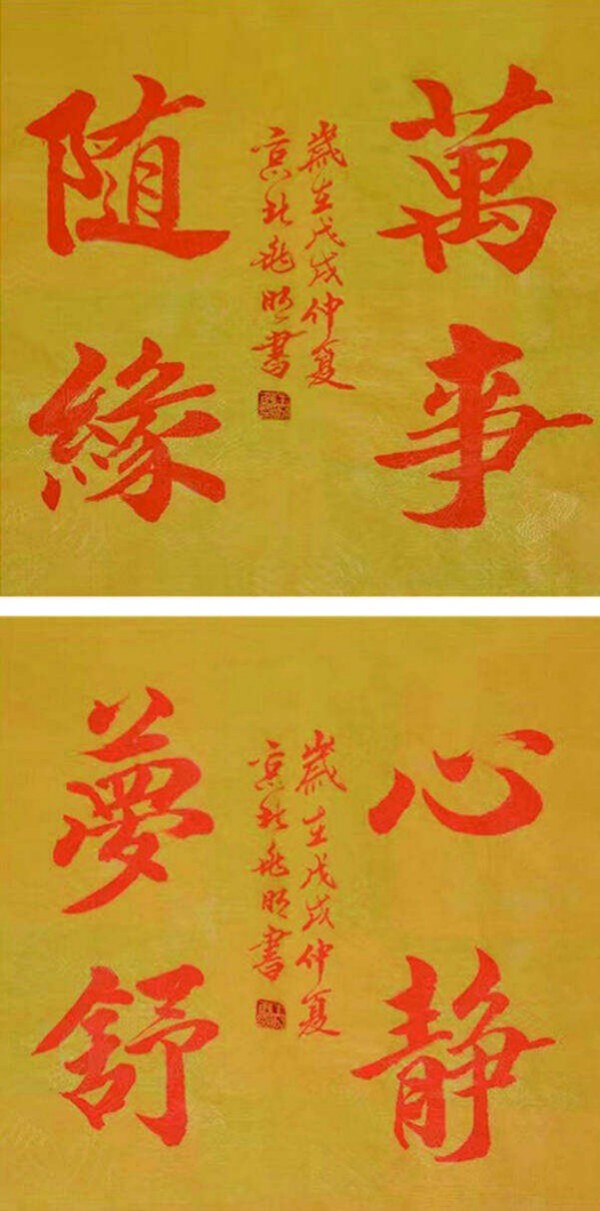 萬事
隨緣
歲在戊戌仲夏
京北兆明書
心靜
夢舒
歲在戊戌仲夏
京北兆明書